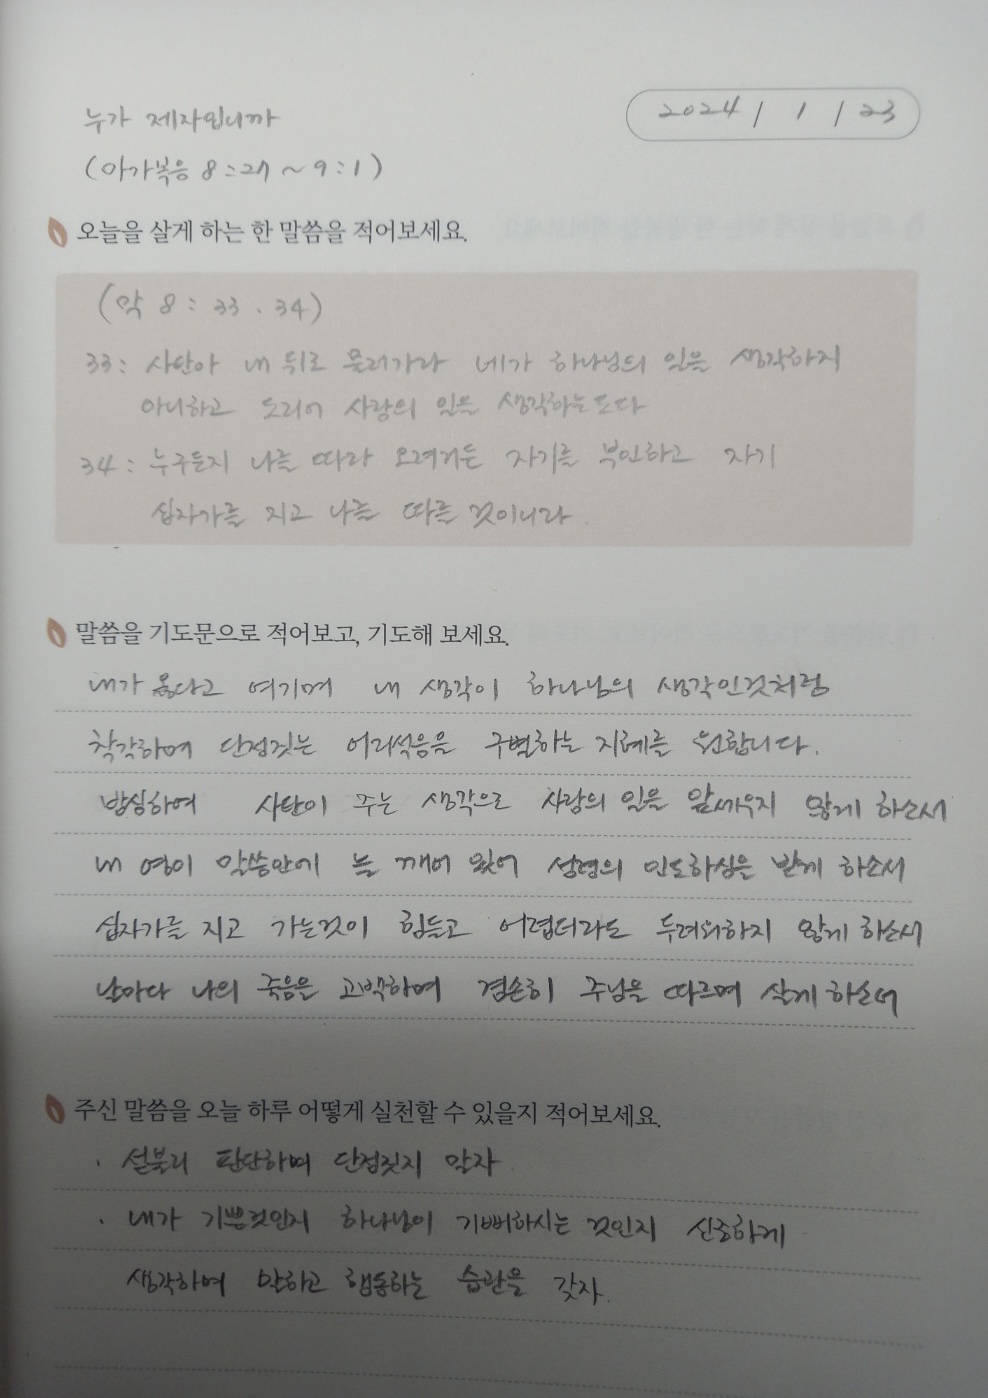 누가 제자입니까
2024 / 1 / 23
(마가복음 8:27 ~ 9:1)
오늘을 살게 하는 한 말씀을 적어보세요.
(막 8 : 33 . 34)
33: 사탄아 내 뒤로 물러가라 네가 하나님의 일을 생각하지
아니하고 도리어 사람의 일을 생각하는도다
34: 누구든지 나를 따라 오려거든 자기를 부인하고 자기
십자가를 지고 나를 따를 것이니라.
말씀을 기도문으로 적어보고, 기도해 보세요.
내가 옳다고 여기며 내 생각이 하나님의 생각인것처럼
착각하며 단정짓는 어리석음을 구별하는 지혜를 원합니다.
방심하여 사탄이 주는 생각으로 사람의 일을 앞세우지 않게 하소서
내 영이 말씀안에 늘 깨어 있어 성령의 인도하심을 받게 하소서
십자가를 지고 가는것이 힘들고 어렵더라도 두려워하지 않게 하소서
날마다 나의 죽음을 고백하며 겸손히 주님을 따르며 살게 하소서
주신 말씀을 오늘 하루 어떻게 실천할 수 있을지 적어보세요.
· 섣불리 판단하며 단정짓지 말자
· 내가 기쁜것인지 하나님이 기뻐하시는 것인지 신중하게
생각하여 말하고 행동하는 습관을 갖자.